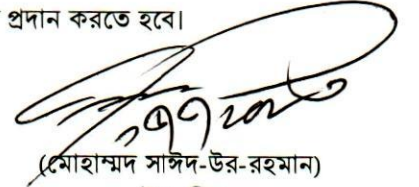 প্রদান করতে হবে।
(মোহাম্মদ সাঈদ-উর-রহমান)